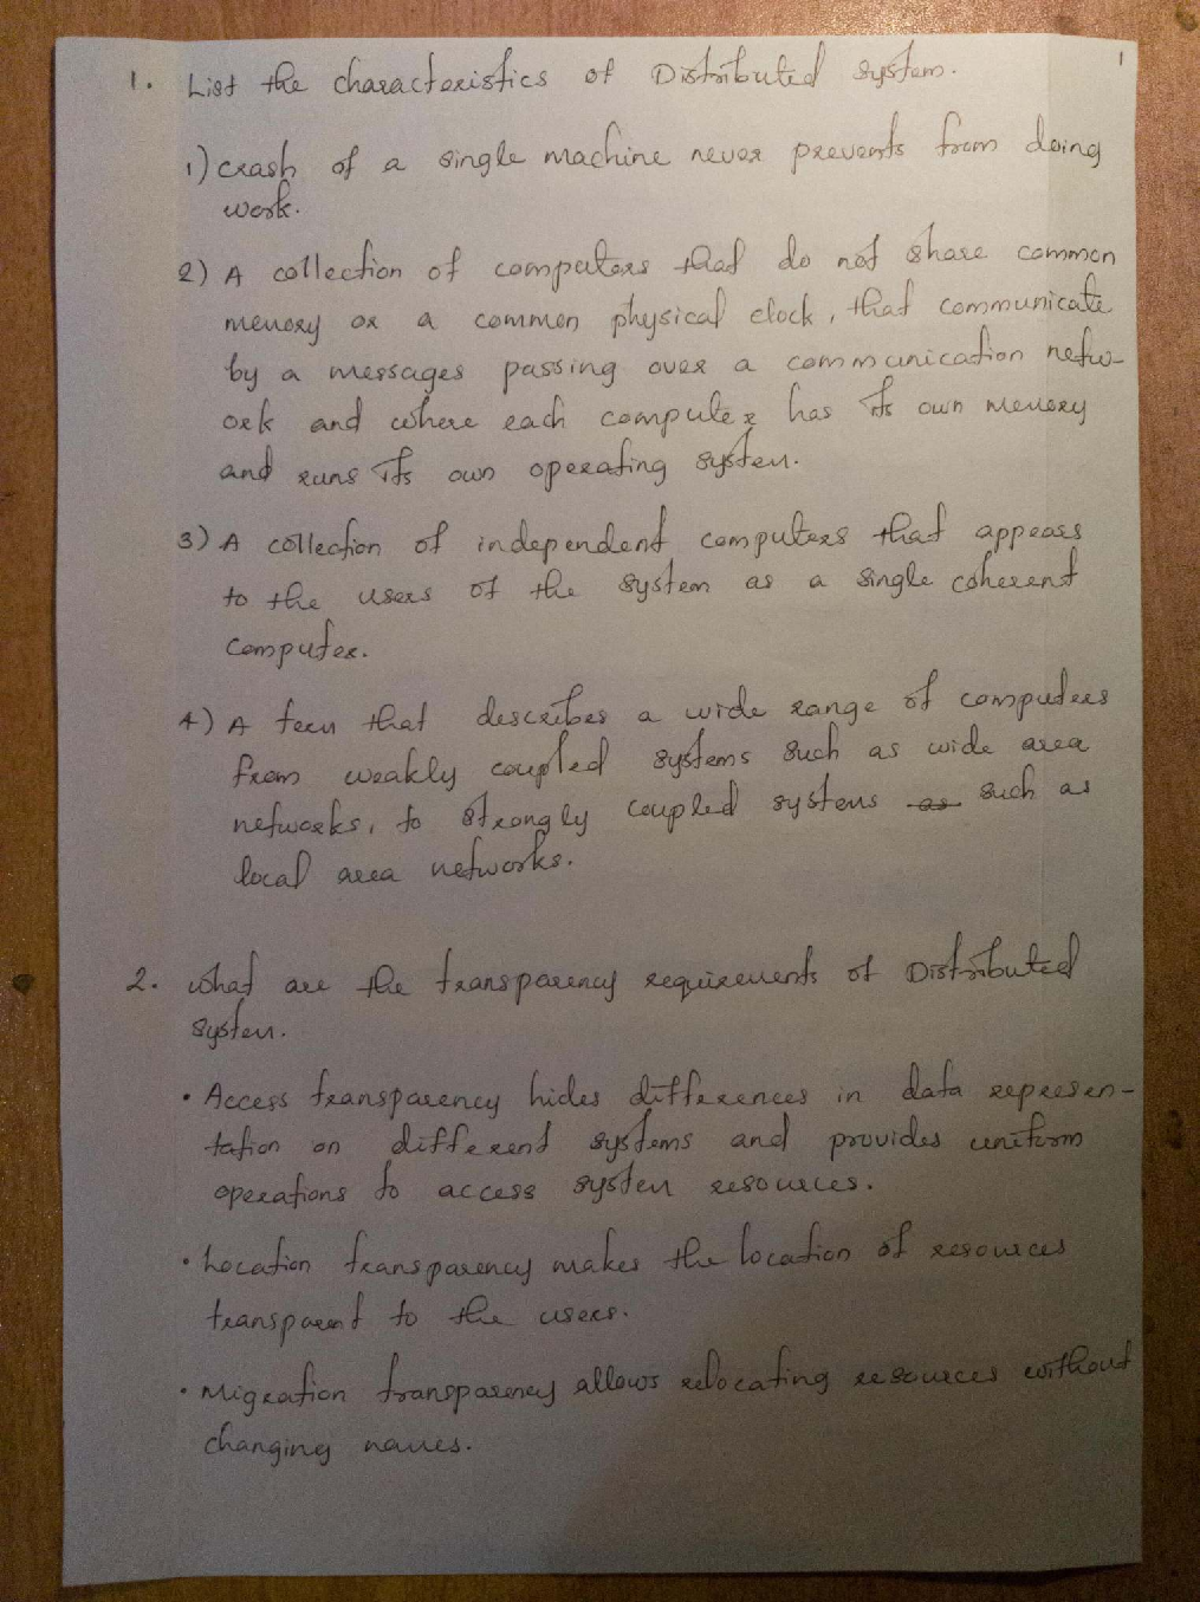 1
1. List the characteristics of Distributed system.
1) crash of a single machine never prevents from doing
work.
2) A collection of computers that do not share common
memory or a common physical clock, that communicate
by a messages passing over a communication netw-
ork and where each computer has its own memory
and runs its own operating system.
3) A collection of independent computers that appears
to the users of the system as a single coherent
computer.
4) A term that describes a wide range of computers
from weakly coupled systems such as wide area
networks, to strongly coupled systems as such as
local area networks.
2. What are the transparency requirements of Distributed
system.
• Access transparency hides differences in data represen-
tation on different systems and provides uniform
operations to access system resources.
• Location transparency makes the location of resources
transparent to the users.
• Migration transparency allows relocating resources without
changing names.